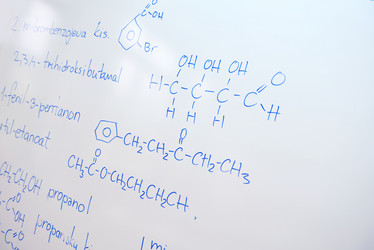 2-brombenzojeva kis.
C
O
OH
Br
2,3,4-trihidroksibutanal
OH OH OH
H-C-C-C-C
O
H
H H H
1-fenil-3-pentanon
O
-CH₂-CH₂-C-CH₂-CH₃
butil-etanoat
O
CH₃C-O-CH₂CH₂CH₂CH
CH₂CH₂OH propanol
O
C
OH
propansk
1 mi